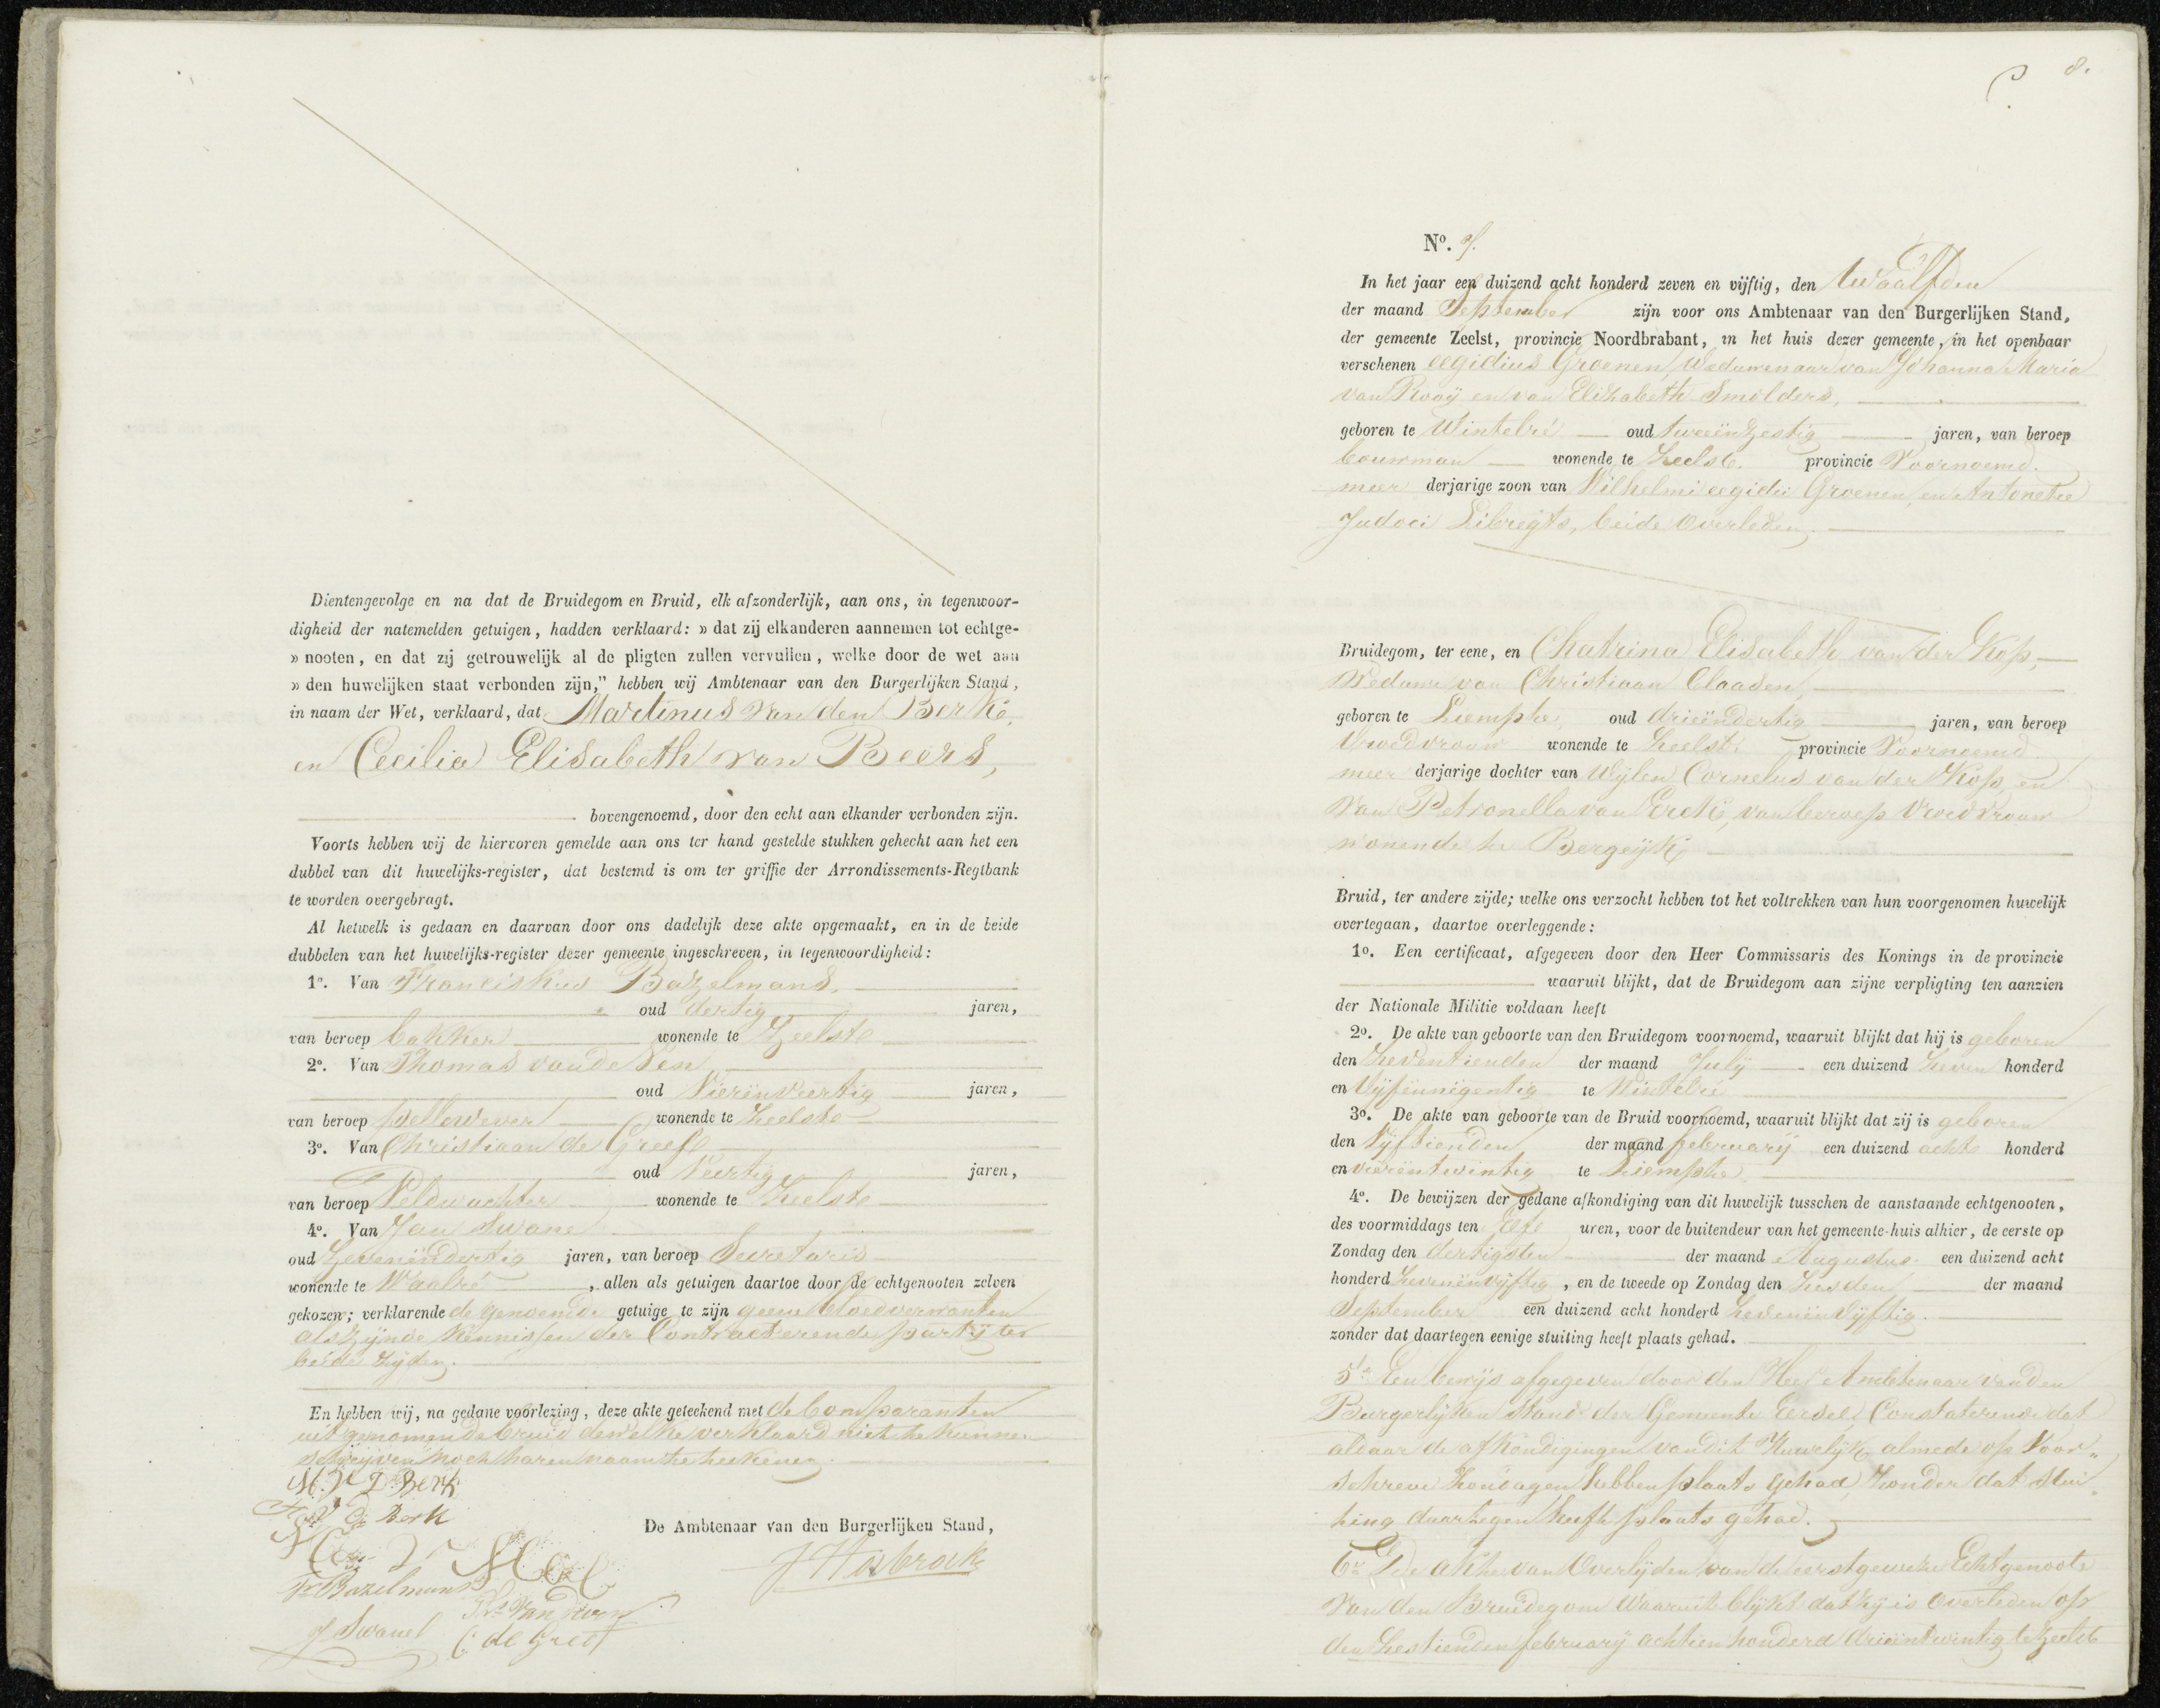 Dientengevolge en na dat de Bruidegom en Bruid, elk afzonderlijk, aan ons, in tegenwoor-
digheid der natemelden getuigen, hadden verklaard: » dat zij elkanderen aannemen tot echtge-
» nooten, en dat zij getrouwelijk al de pligten zullen vervullen, welke door de wet aan
» den huwelijken staat verbonden zijn,” hebben wij Ambtenaar van den Burgerlijken Stand,
in naam der Wet, verklaard, dat Martinus van den Berk
en Cecilia Elisabeth van Beers,
bovengenoemd, door den echt aan elkander verbonden zijn.
Voorts hebben wij de hiervoren gemelde aan ons ter hand gestelde stukken gehecht aan het een
dubbel van dit huwelijks-register, dat bestemd is om ter griffie der Arrondissements-Regtbank
te worden overgebragt.
Al hetwelk is gedaan en daarvan door ons dadelijk deze akte opgemaakt, en in de beide
dubbelen van het huwelijks-register dezer gemeente ingeschreven, in tegenwoordigheid:
1o. Van Franciskus Bazelmans,
oud dertig jaren,
van beroep bakker wonende te Zeelst
2o. Van Thomas van de Ven
oud Vierenveertig jaren,
van beroep wever wonende te Zeelst
3o. Van Christiaan de Greef
oud Veertig jaren,
van beroep Veldwachter wonende te Zeelst
4o. Van Jan Swane
oud Zevenendertig jaren, van beroep Secretaris
wonende te Waalre, allen als getuigen daartoe door de echtgenooten zelven
gekozen; verklarende de genoemde getuige te zijn geene bloedverwanten
als zijnde kennissen der Contracterende partij ter
beide zijden.
En hebben wij, na gedane voorlezing, deze akte geteekend met de Comparanten
uitgenomen de bruid dewelke verklaard niet te kunnen
schrijven noch haren naam te teekenen.
M. V D Berk
V D Berk
Fr Bazelmans
J Swane
C. de Greef
De Ambtenaar van den Burgerlijken Stand,
8.
No. 7.
In het jaar een duizend acht honderd zeven en vijftig, den twaalfden
der maand September zijn voor ons Ambtenaar van den Burgerlijken Stand,
der gemeente Zeelst, provincie Noordbrabant, in het huis dezer gemeente, in het openbaar
verschenen Egidius Groenen, Weduwenaar van Johanna Maria
van Rooij en van Elizabeth Smolders,
geboren te Wintelré oud tweeënzestig jaren, van beroep
bouwman wonende te Zeelst. provincie Voornoemd.
meerderjarige zoon van Wilhelmi Egidii Groenen, en Antonetie
Judoci Libregts, beide overleden.
Bruidegom, ter eene, en Chatrina Elisabeth van der Kop,
Weduwe van Christiaan Claasen,
geboren te Liempde oud drieëndertig jaren, van beroep
Vroedvrouw wonende te Zeelst. provincie Voornoemd
meerderjarige dochter van Wijlen Cornelus van der Kop, en
van Petronella van Eerck, van beroep Vroedvrouw
wonende te Bergeijk
Bruid, ter andere zijde; welke ons verzocht hebben tot het voltrekken van hun voorgenomen huwelijk
overtegaan, daartoe overleggende:
1o. Een certificaat, afgegeven door den Heer Commissaris des Konings in de provincie
waaruit blijkt, dat de Bruidegom aan zijne verpligting ten aanzien
der Nationale Militie voldaan heeft
2o. De akte van geboorte van den Bruidegom voornoemd, waaruit blijkt dat hij is geboren
den zeventienden der maand July een duizend zeven honderd
en Vijfennegentig te Wintelré
3o. De akte van geboorte van de Bruid voornoemd, waaruit blijkt dat zij is geboren
den Vijftienden der maand februarij een duizend acht honderd
en vierentwintig te Liempde
4o. De bewijzen der gedane afkondiging van dit huwelijk tusschen de aanstaande echtgenooten,
des voormiddags ten Elf uren, voor de buitendeur van het gemeente-huis alhier, de eerste op
Zondag den dertigsten der maand Augustus een duizend acht
honderd zevenenvijftig, en de tweede op Zondag den zesden der maand
September een duizend acht honderd zevenenvijftig.
zonder dat daartegen eenige stuiting heeft plaats gehad.
5o Een bewijs afgegeven door den Heer Ambtenaar van den
Burgerlijken Stand der Gemeente Eersel, Constaterende dat
aldaar de afkondigingen van dit Huwelijk almede op Voor„
schreve Zondagen hebben plaats gehad, zonder dat stui„
ting daartegen heeft plaats gehad.
6o De akte van Overlijden van de eerstgeweke Echtgenoote
van den Bruidegom waaruit blijkt dat hij is Overleden op
den zestienden februarij achtien honderd drieentwintig te Zeelst